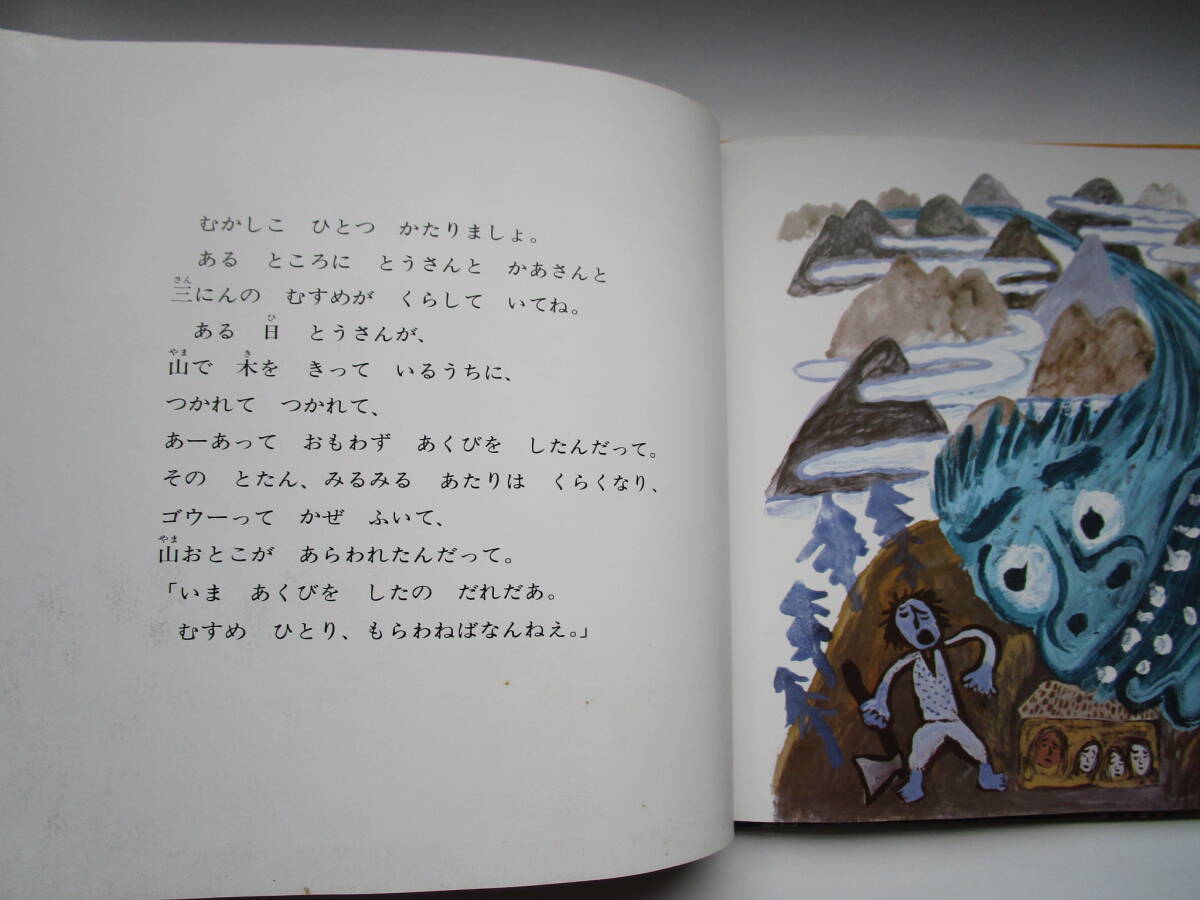 むかしこ　ひとつ　かたりましょ。
ある　ところに　とうさんと　かあさんと
三にんの　むすめが　くらして　いてね。
ある　日　とうさんが、
山で　木を　きって　いるうちに、
つかれて　つかれて、
あーあって　おもわず　あくびを　したんだって。
その　とたん、みるみる　あたりは　くらくなり、
ゴウーって　かぜ　ふいて、
山おとこが　あらわれたんだって。
「いま　あくびを　したの　だれだあ。
むすめ　ひとり、もらわねばなんねえ。」